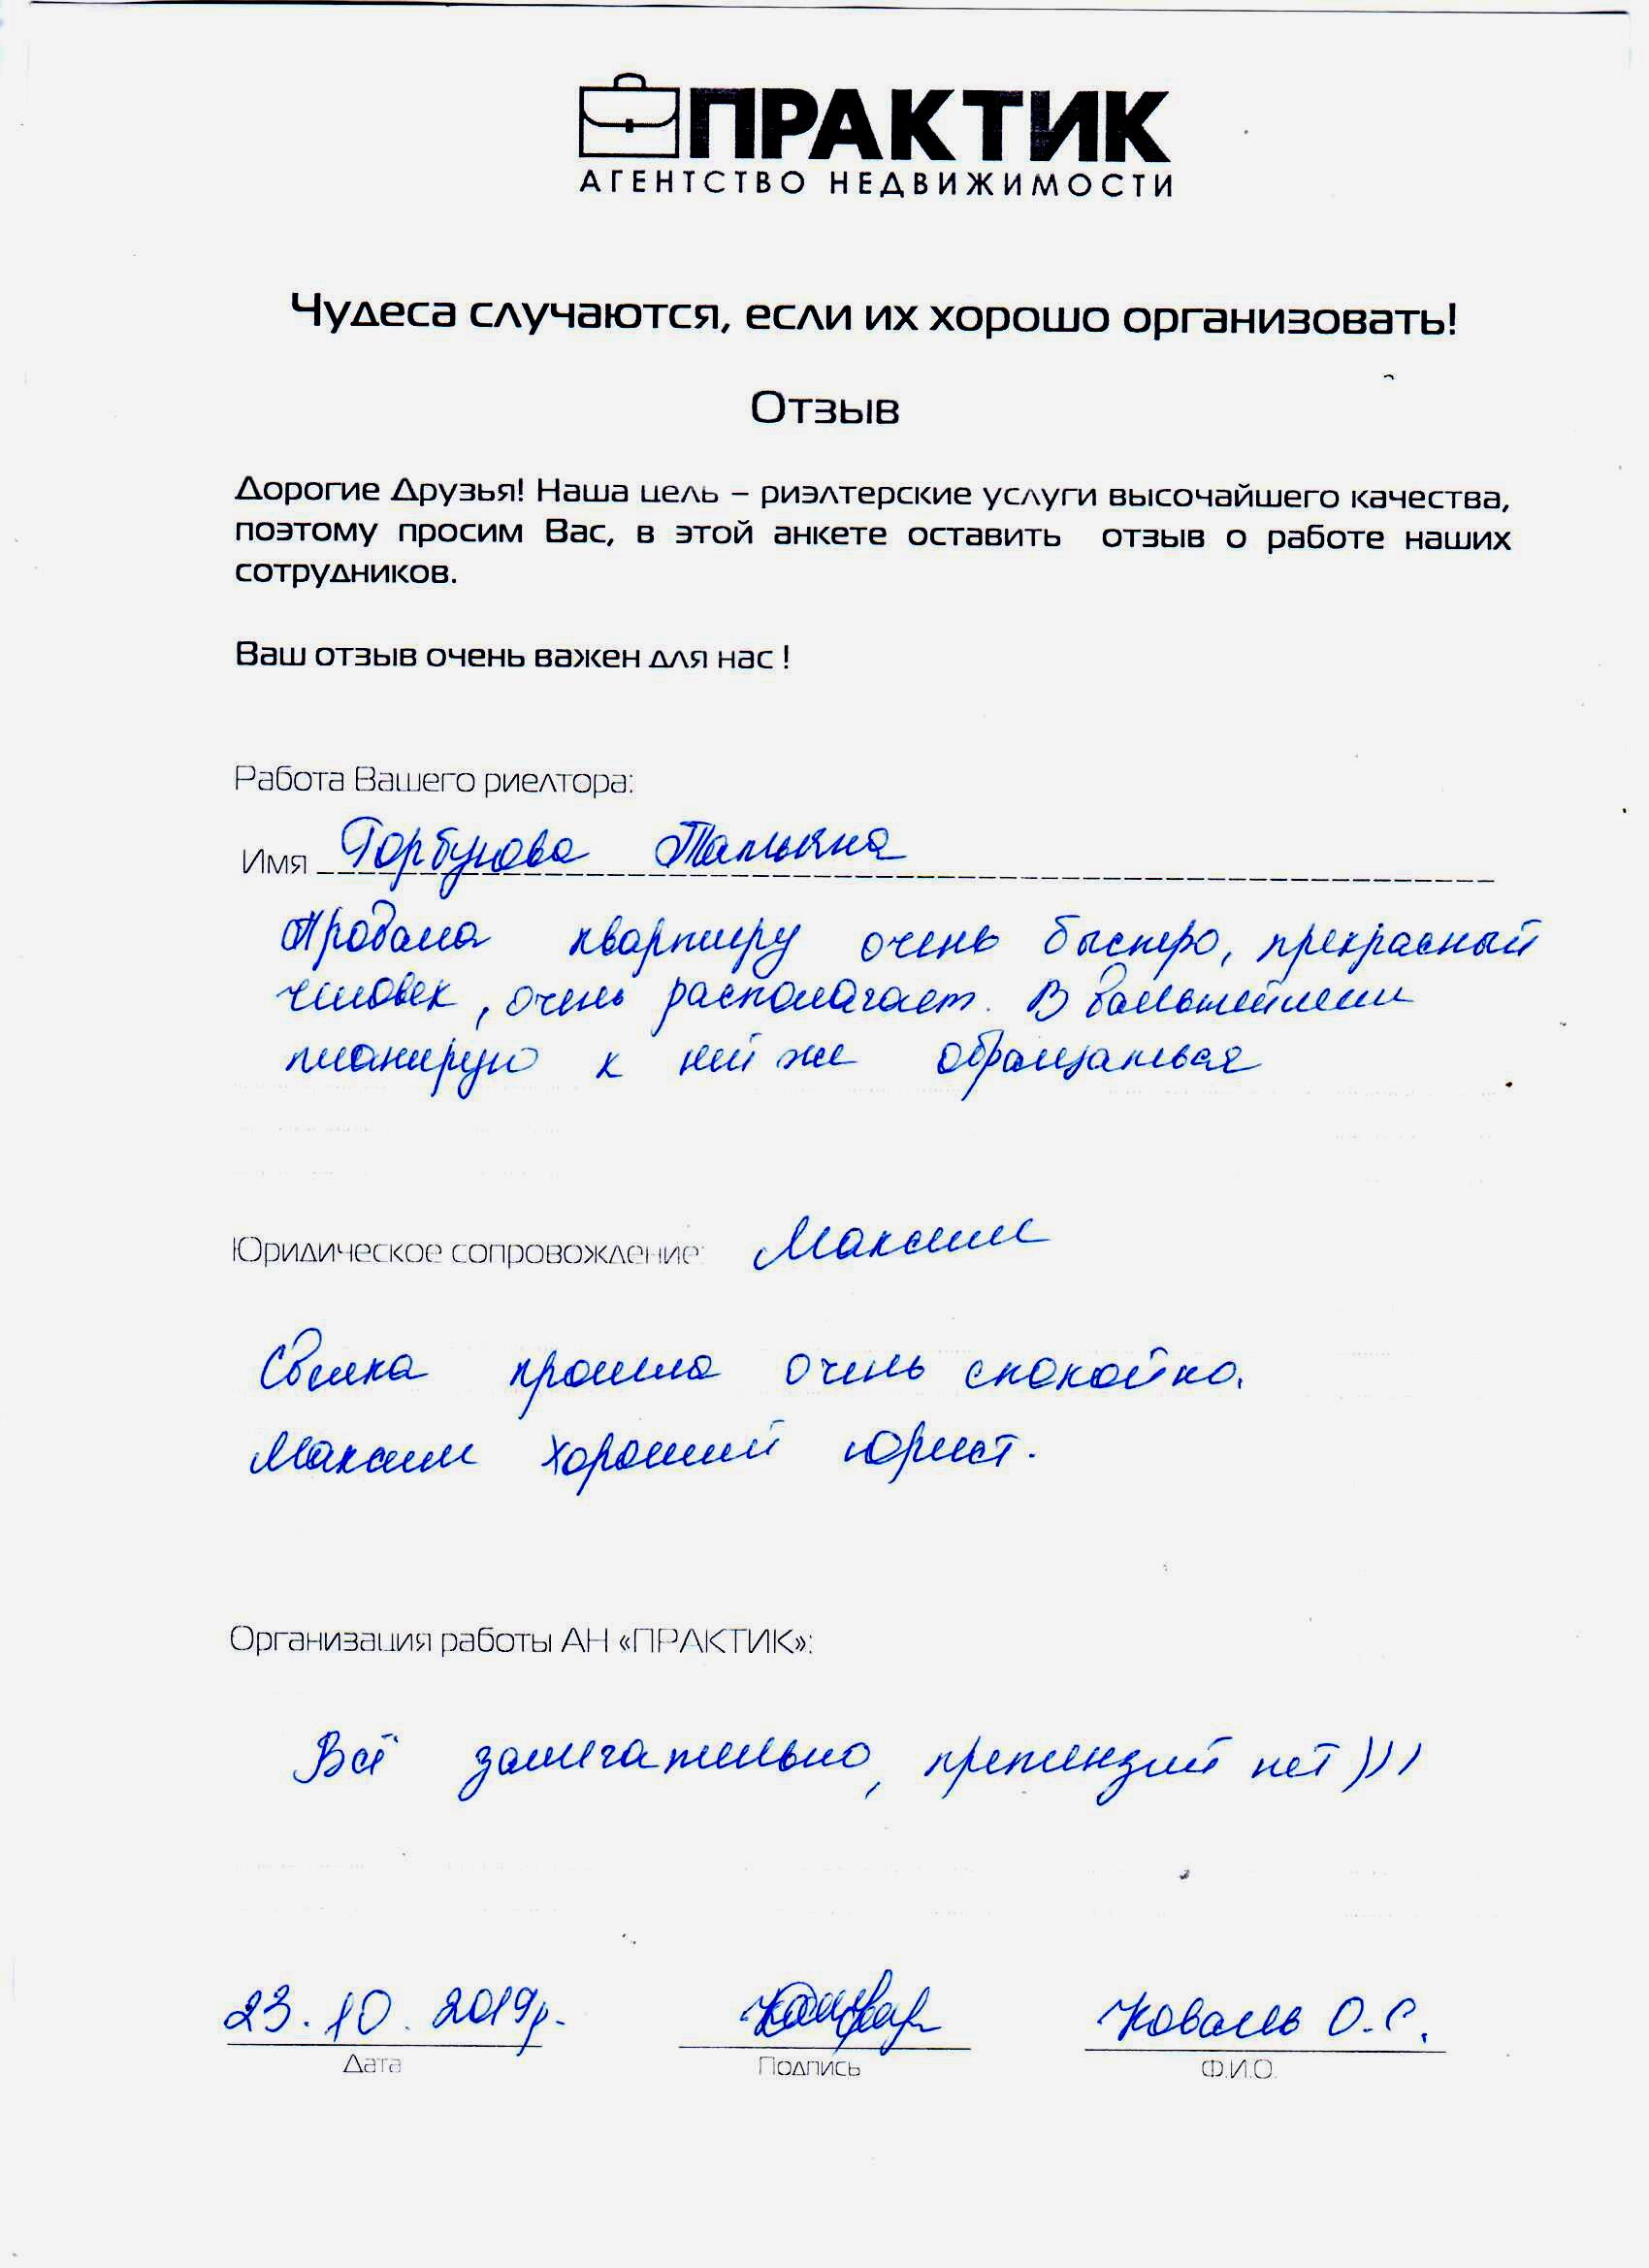 ПРАКТИК
АГЕНТСТВО НЕДВИЖИМОСТИ
Чудеса случаются, если их хорошо организовать!
Отзыв
Дорогие Друзья! Наша цель – риэлтерские услуги высочайшего качества,
поэтому просим Вас, в этой анкете оставить отзыв о работе наших
сотрудников.
Ваш отзыв очень важен для нас !
Работа Вашего риелтора:
Имя Горбунова Татьяна
Продала квартиру очень быстро, прекрасный
человек, очень располагает. В дальнейшем
планирую к ней же обращаться
Юридическое сопровождение: Максим
Сделка прошла очень спокойно.
Максим хороший юрист.
Организация работы АН «ПРАКТИК»:
Всё замечательно, претензий нет)))
23.10.2019г. Коваль О.С.
Дата Подпись Ф.И.О.